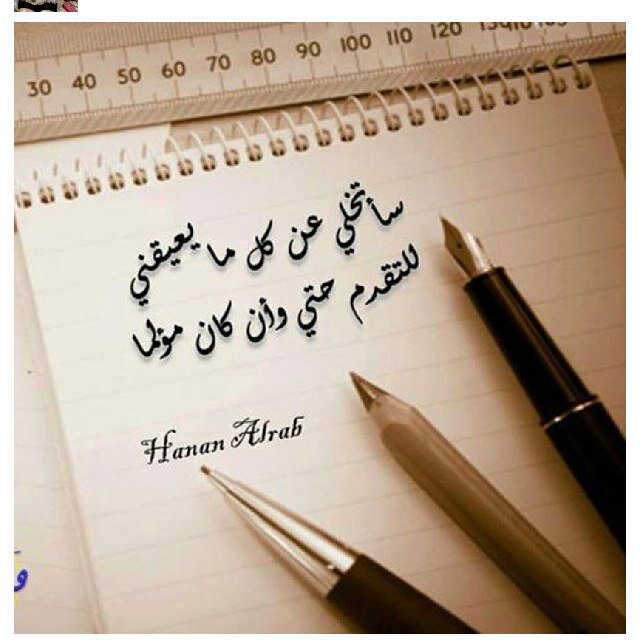 30 40 50 60 70 80 90 100 110 120
سأتخلي عن كل ما يعيقني
للتقدم حتي وأن كان مؤلما
Hanan Alrab
و